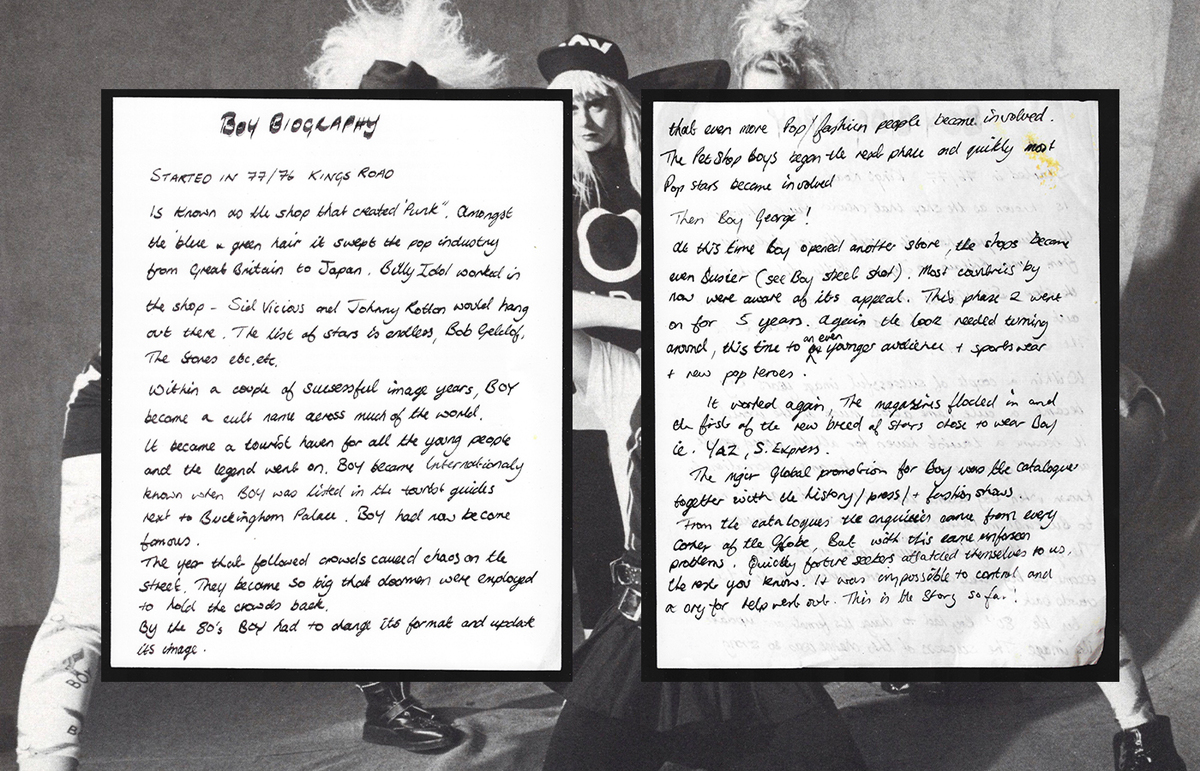 BOY BIOGRAPHY
STARTED IN 77/76 KINGS ROAD
Is known as the shop that created "Punk". Amongst
the blue & green hair it swept the pop industry
from Great Britain to Japan. Billy Idol worked in
the shop - Sid Vicious and Johnny Rotton would hang
out there. The list of stars is endless, Bob Geldof,
The Stones etc, etc.
Within a couple of successful image years, BOY
became a cult name across much of the world.
It became a tourist haven for all the young people
and the legend went on. BOY became Internationaly
known when BOY was listed in the tourist guides
next to Buckingham Palace. BOY had now become
famous.
The year that followed crowds caused chaos on the
street. They became so big that doormen were employed
to hold the crowds back.
By the 80's BOY had to change its format and update
its image.
that even more Pop/fashion people became involved.
The Pet Shop Boys began the next phase and quickly most
Pop stars became involved
Then Boy George!
At this time Boy opened another store, the shops became
even busier (see Boy steel shot). Most countries by
now were aware of its appeal. This phase 2 went
on for 5 years. Again the look needed turning
around, this time to an even younger audience + sportswear
+ new pop heroes.
It worked again, The magazines flocked in and
the first of the new breed of stars chose to wear Boy
ie. YAZ, S. Express.
The major Global promotion for Boy was the catalogue
together with the history/press/+ fashion shows.
From the catalogues the enquiries came from every
corner of the Globe, But with this came unforseen
problems. Quickly fortune seekers attatched themselves to us,
the rest you know. It was impossible to control, and
a cry for help went out. This is the Story so far!
BOY